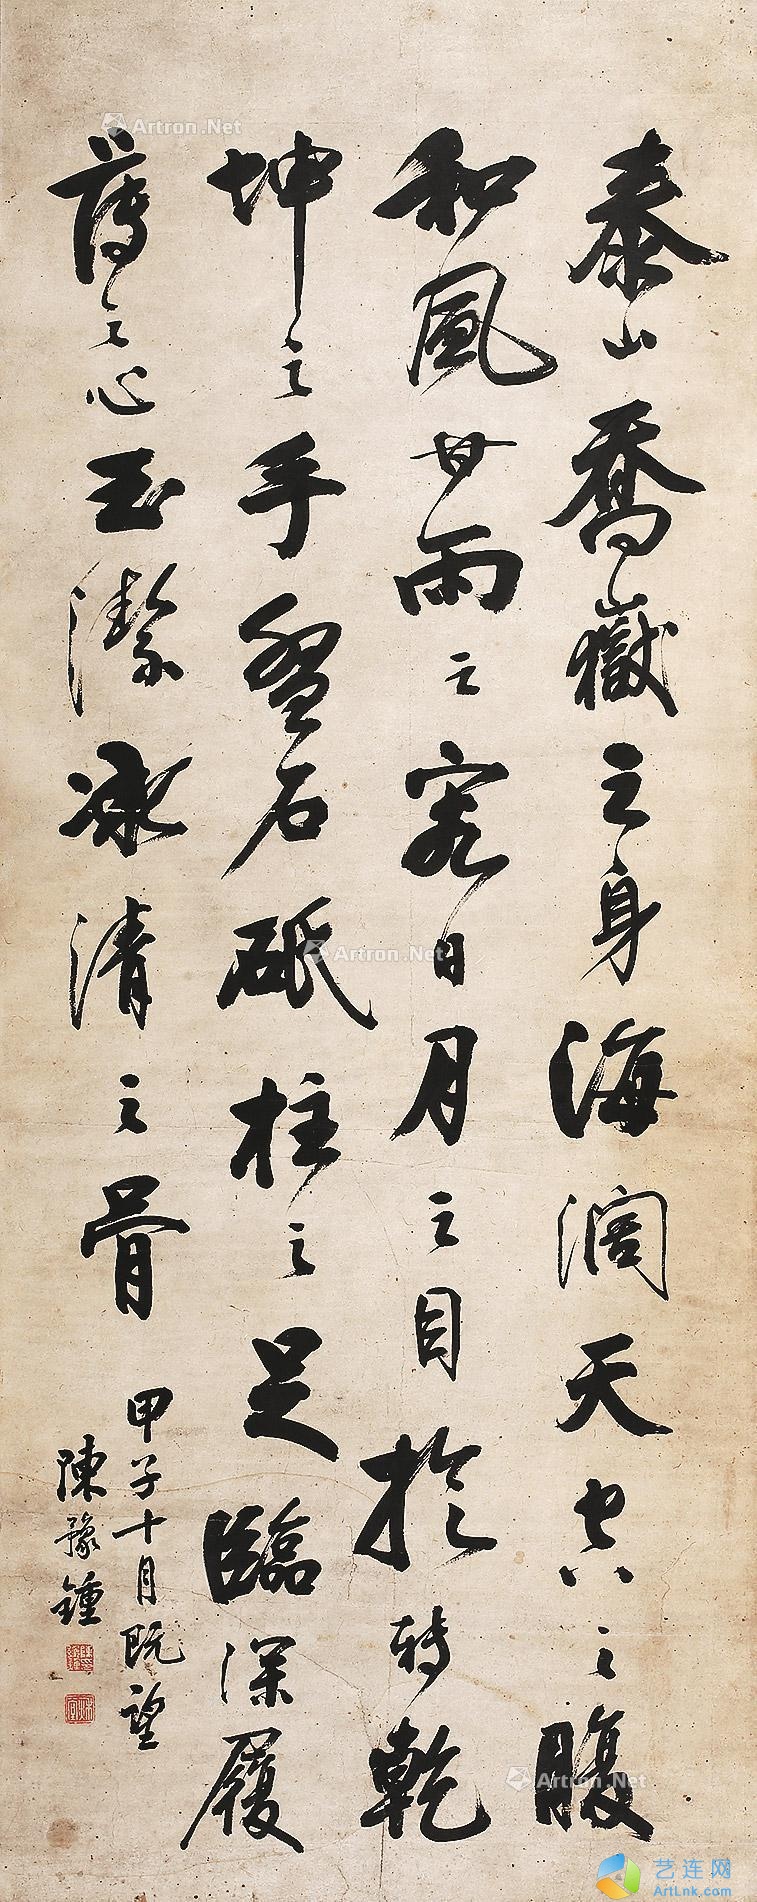 泰山喬嶽之身海濶天空之腹
和風甘雨之容日月之目旋轉乾
坤之手盤石砥柱之足臨深履
薄之心玉潔冰清之骨
甲子十月既望
陳豫鍾
Artron.Net
Artron.Net
Artron.Net
艺连网
ArtLnk.com